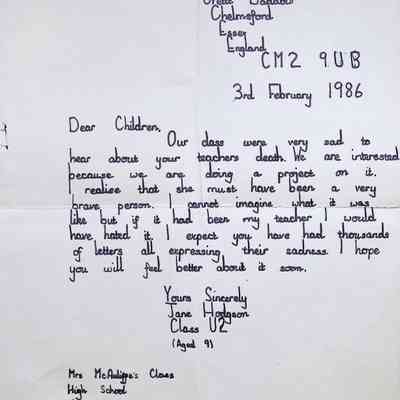 Great Baddow
Chelmsford
Essex
England
CM2 9UB
3rd February 1986
Dear Children,
Our class were very sad to
hear about your teachers death. We are interested
because we are doing a project on it.
I realise that she must have been a very
brave person. I cannot imagine what it was
like but if it had been my teacher I would
have hated it. I expect you have had thousands
of letters all expressing their sadness. I hope
you will feel better about it soon.
Yours Sincerely
Jane Hodgson
Class U2
(Aged 9)
Mrs McAuliffe's Class
High School